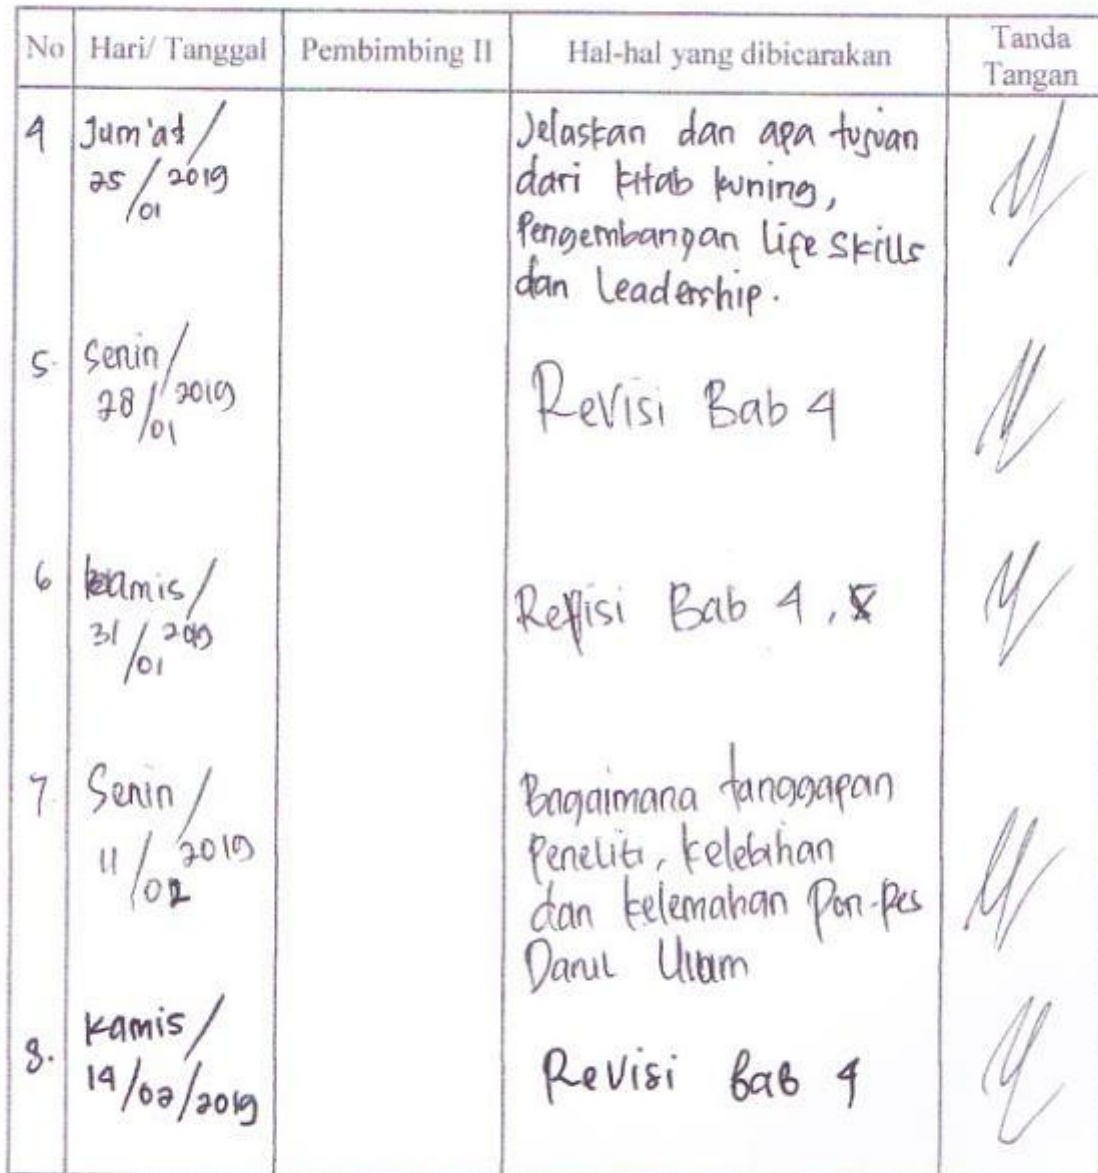 No Hari/ Tanggal Pembimbing II Hal-hal yang dibicarakan Tanda Tangan
4 Jum'at / 25/01 2019 Jelaskan dan apa tujuan
dari kitab kuning,
Pengembangan Life Skills
dan Leadership.
5. Senin / 28/01 2019 Revisi Bab 4
6 Kamis / 31/01 2019 Refisi Bab 4, 5
7 Senin / 11/02 2019 Bagaimana tanggapan
Peneliti, kelebihan
dan kelemahan Pon-Pes
Darul Ulum
8. Kamis / 14/02/2019 Revisi Bab 4